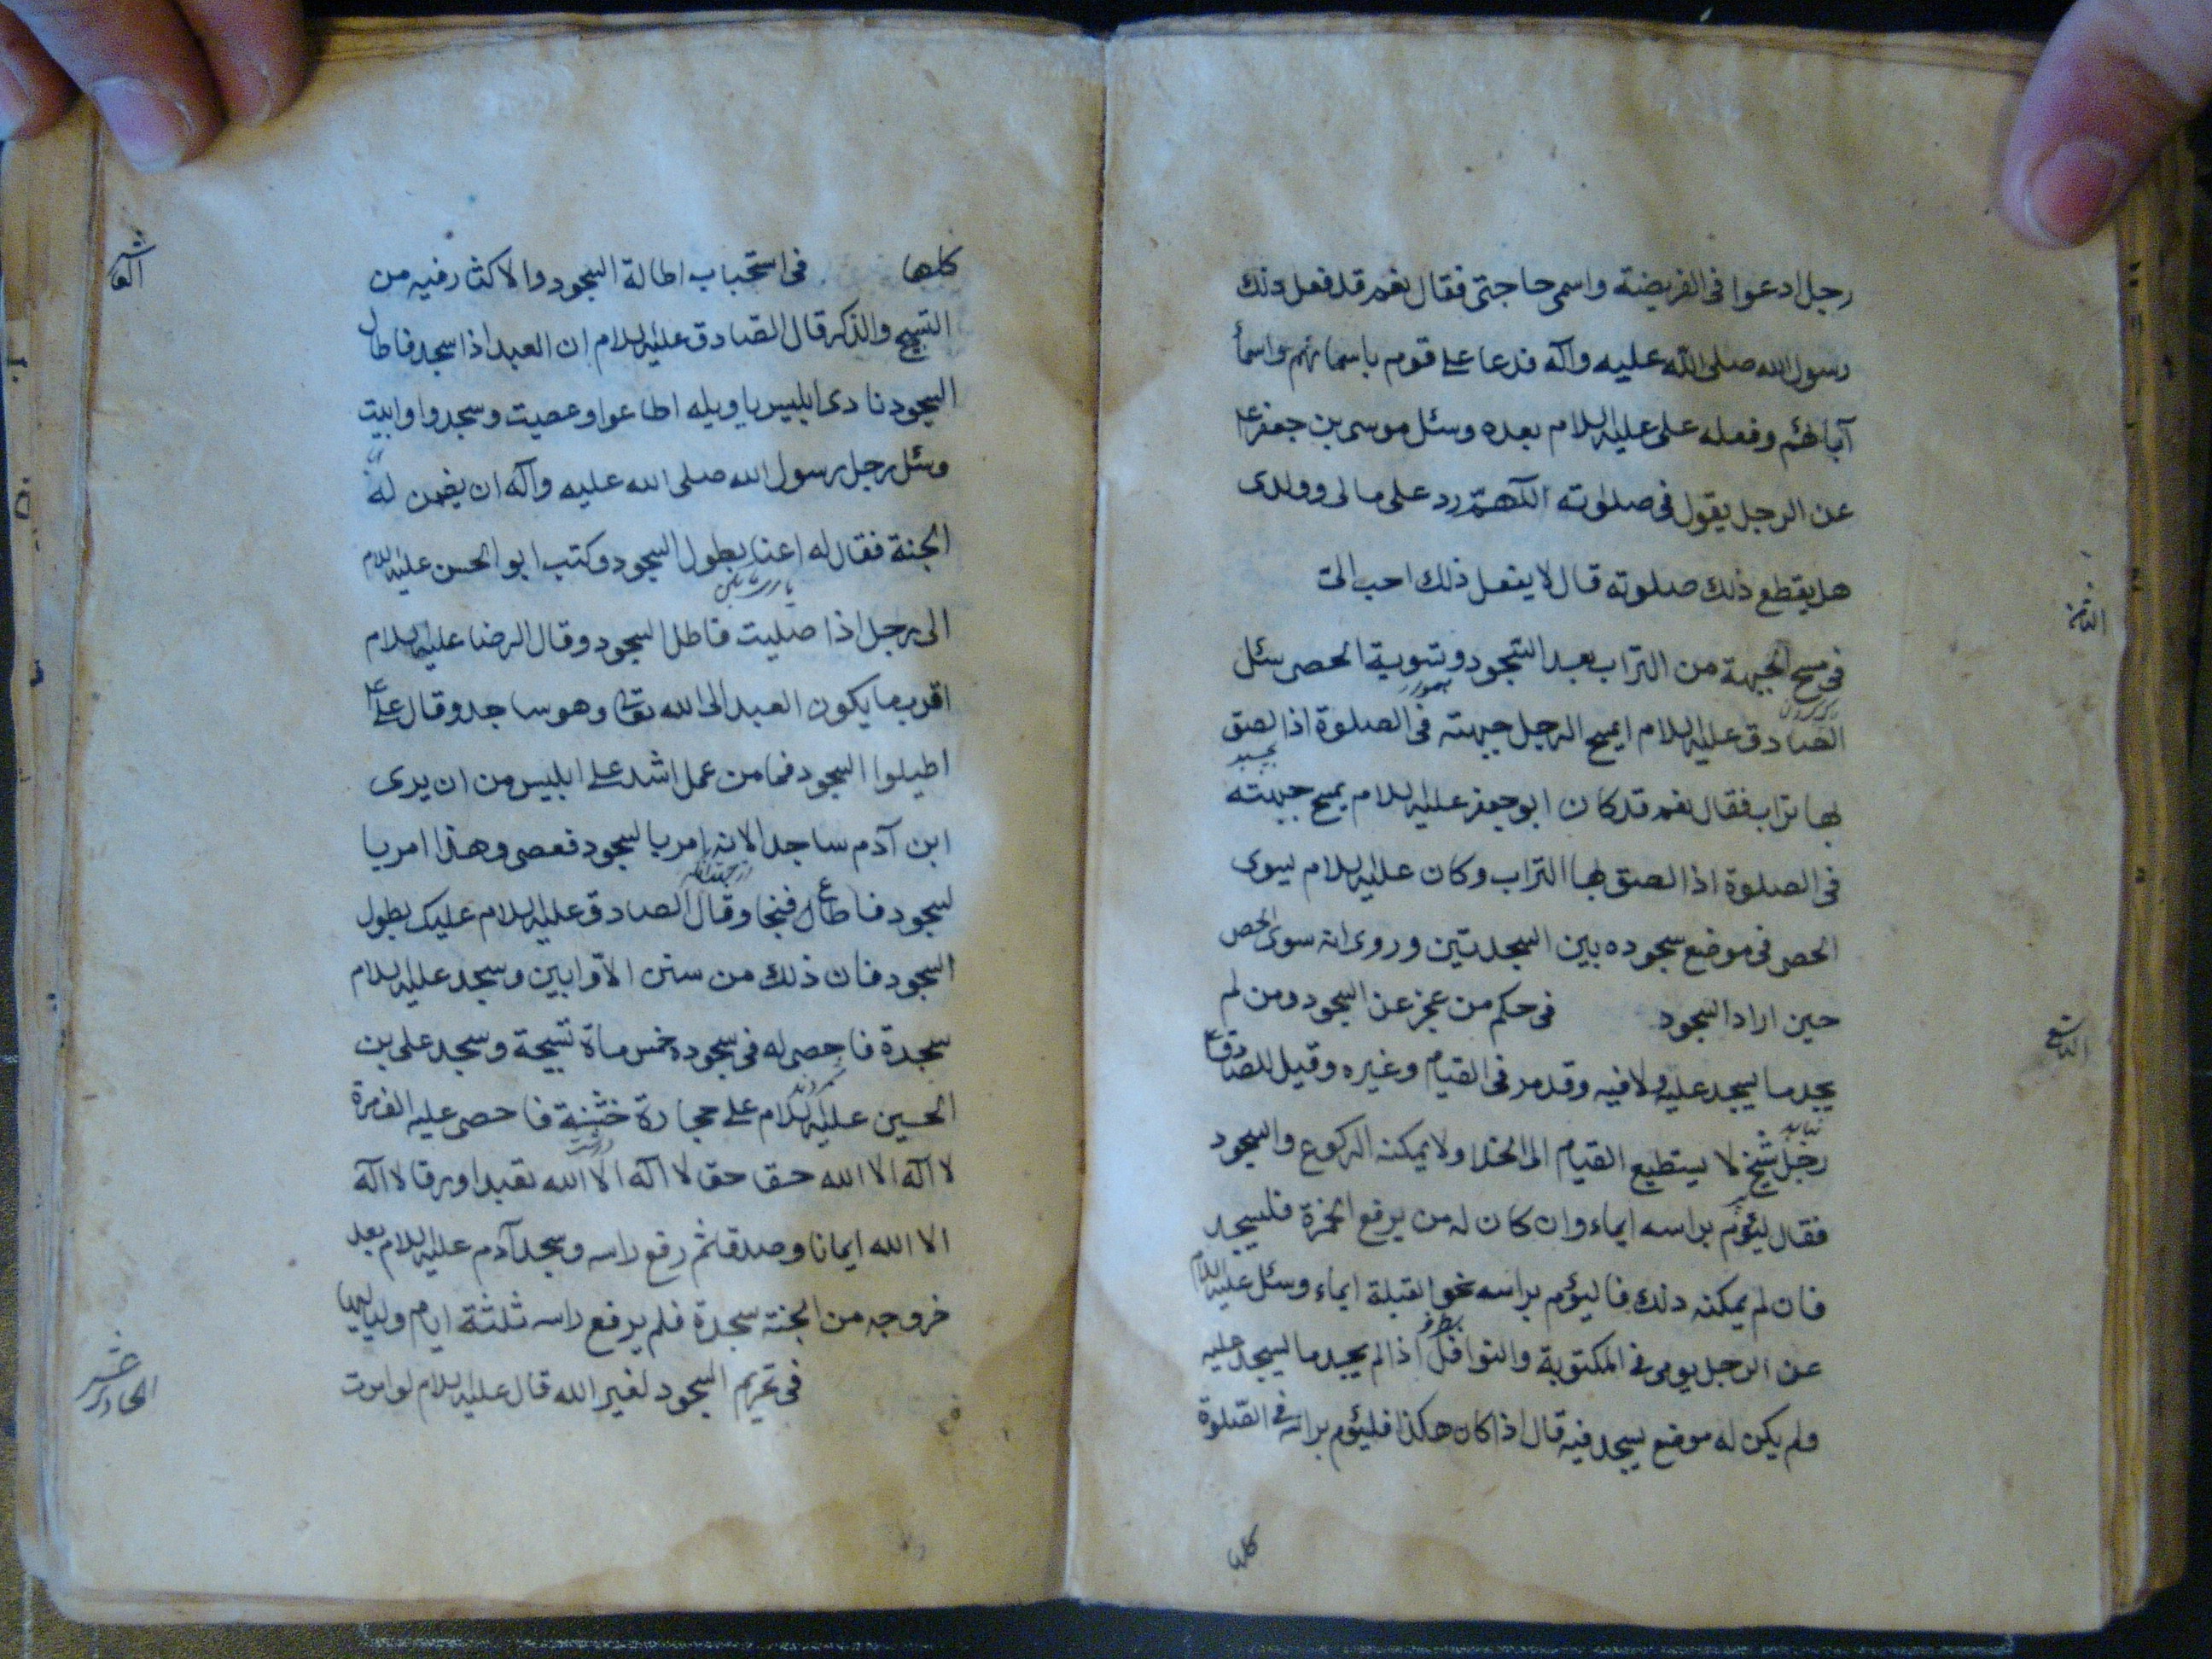 رجل ادعوا فى الفريضة واسمى حاجتى فقال نعم قد فعل ذلك
رسول الله صلى الله عليه وآله فدعا على قوم باسمائهم واسمأ
آبائهم وفعله على عليه السلام بعده وسئل موسى بن جعفر ع
عن الرجل يقول فى صلوته اللهم رد على مالى وولدى
هل يقطع ذلك صلوته قال لا يفعل ذلك احب الى
الثامن
فى مسح الجبهة من التراب بعد السجود وتسوية الحصى سئل
الصادق عليه السلام ايمسح الرجل جبهته فى الصلوة اذا لصق
بها تراب فقال نعم قد كان ابو جعفر عليه السلام يمسح جبهته
فى الصلوة اذا لصق بها التراب وكان عليه السلام يسوى
الحصى فى موضع سجوده بين السجدتين وروى انه سوى الحصى
حين اراد السجود فى حكم من عجز عن السجود ومن لم
التاسع
يجد ما يسجد عليه ولا فيه وقد مر فى القيام وغيره وقيل للصادق ع
رجل شيخ لا يستطيع القيام الى الخلا ولا يمكنه الركوع والسجود
فقال ليؤم براسه ايماء وان كان له من يرفع الخمرة فليسجد
فان لم يمكنه ذلك فاليؤم براسه نحو القبلة ايماء وسئل عليه السلام
عن الرجل يومى فى المكتوبة والنوافل اذا لم يجد ما يسجد عليه
ولم يكن له موضع يسجد فيه قال اذا كان هكذا فليؤم براسه فى الصلوة
كلها
كلها فى استحباب اطالة السجود والاكثار فيه من
العاشر
التسبيح والذكر قال الصادق عليه السلام ان العبد اذا سجد فاطال
السجود نادى ابليس يا ويله اطاعوا وعصيت وسجدوا وابيت
وسئل رجل رسول الله صلى الله عليه وآله ان يضمن له
الجنة فقال له اعنا بطول السجود وكتب ابو الحسن عليه السلام
الى رجل اذا صليت فاطل السجود وقال الرضا عليه السلام
اقرب ما يكون العبد الى الله تعالى وهو ساجد وقال على ع
اطيلوا السجود فما من عمل اشد على ابليس من ان يرى
ابن آدم ساجدا لانه امر بالسجود فعصى وهذا امر با
لسجود فاطاع فنجا وقال الصادق عليه السلام عليك بطول
السجود فان ذلك من سنن الاوابين وسجد عليه السلام
سجدة فاحصى له فى سجوده خمس ماة تسبيحة وسجد على بن
الحسين عليه السلام على حجارة خشنة فاحصى عليه الف مرة
درشت
لا اله الا الله حقا حقا لا اله الا الله تعبدا ورقا لا اله
الا الله ايمانا وصدقا ثم رفع راسه وسجد آدم عليه السلام بعد
خروجه من الجنة سجدة فلم يرفع راسه ثلثة ايام ولياليها
فى تحريم السجود لغير الله قال عليه السلام لو امرت
الحادى عشر